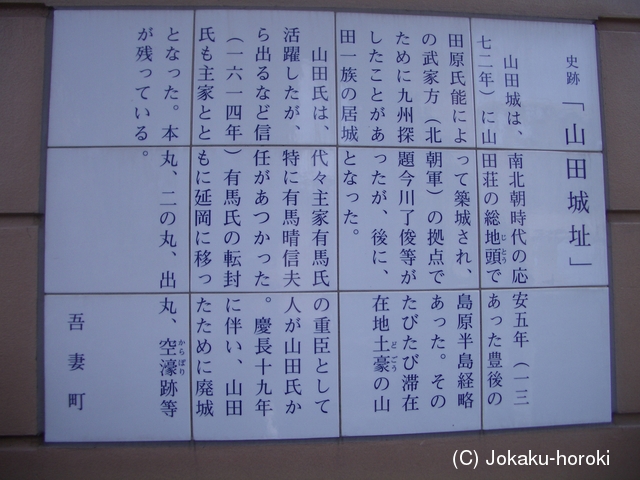 史跡「山田城址」
山田城は、南北朝時代の応安五年（一三
七二年）に山田荘の総地頭（じとう）であった豊後の
田原氏能によって築城され、島原半島経略
の武家方（北朝軍）の拠点であった。その
ために九州探題今川了俊等がたびたび滞在
したことがあったが、後に、在地土豪（どごう）の山
田一族の居城となった。
山田氏は、代々主家有馬氏の重臣として
活躍したが、特に有馬晴信夫人が山田氏か
ら出るなど信任があつかった。慶長十九年
（一六一四年）有馬氏の転封に伴い、山田
氏も主家とともに延岡に移ったために廃城
となった。本丸、二の丸、出丸、空濠（からぼり）跡等
が残っている。
吾妻町
(C) Jokaku-horoki